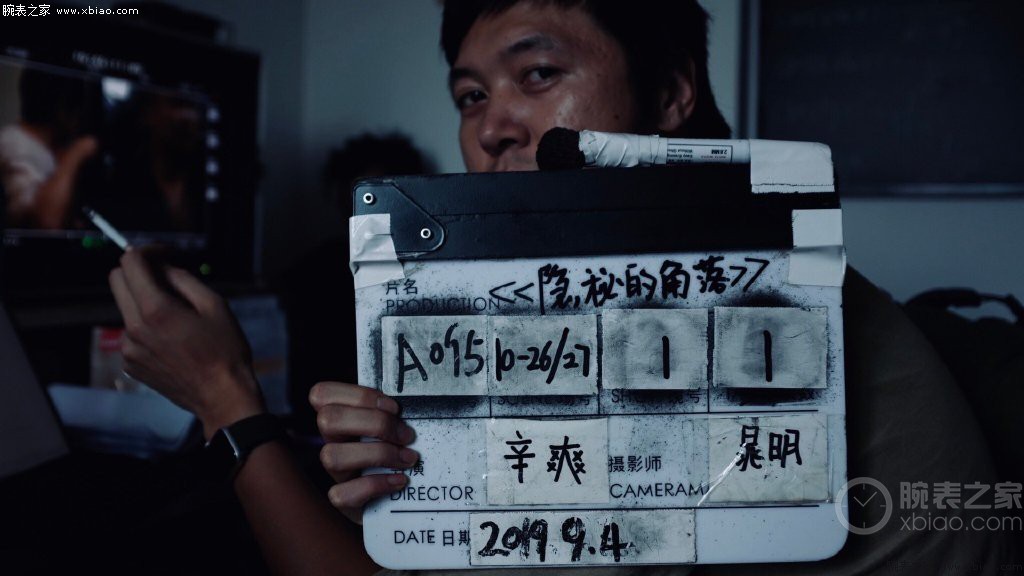 腕表之家 www.xbiao.com
片名
<<隐秘的角落>>
PRODUCTION
A095 10-26/27 1 1
辛爽 摄影师 晁明
DIRECTOR CAMERAM
DATE 日期 2019 9.4
腕表之家
xbiao.com